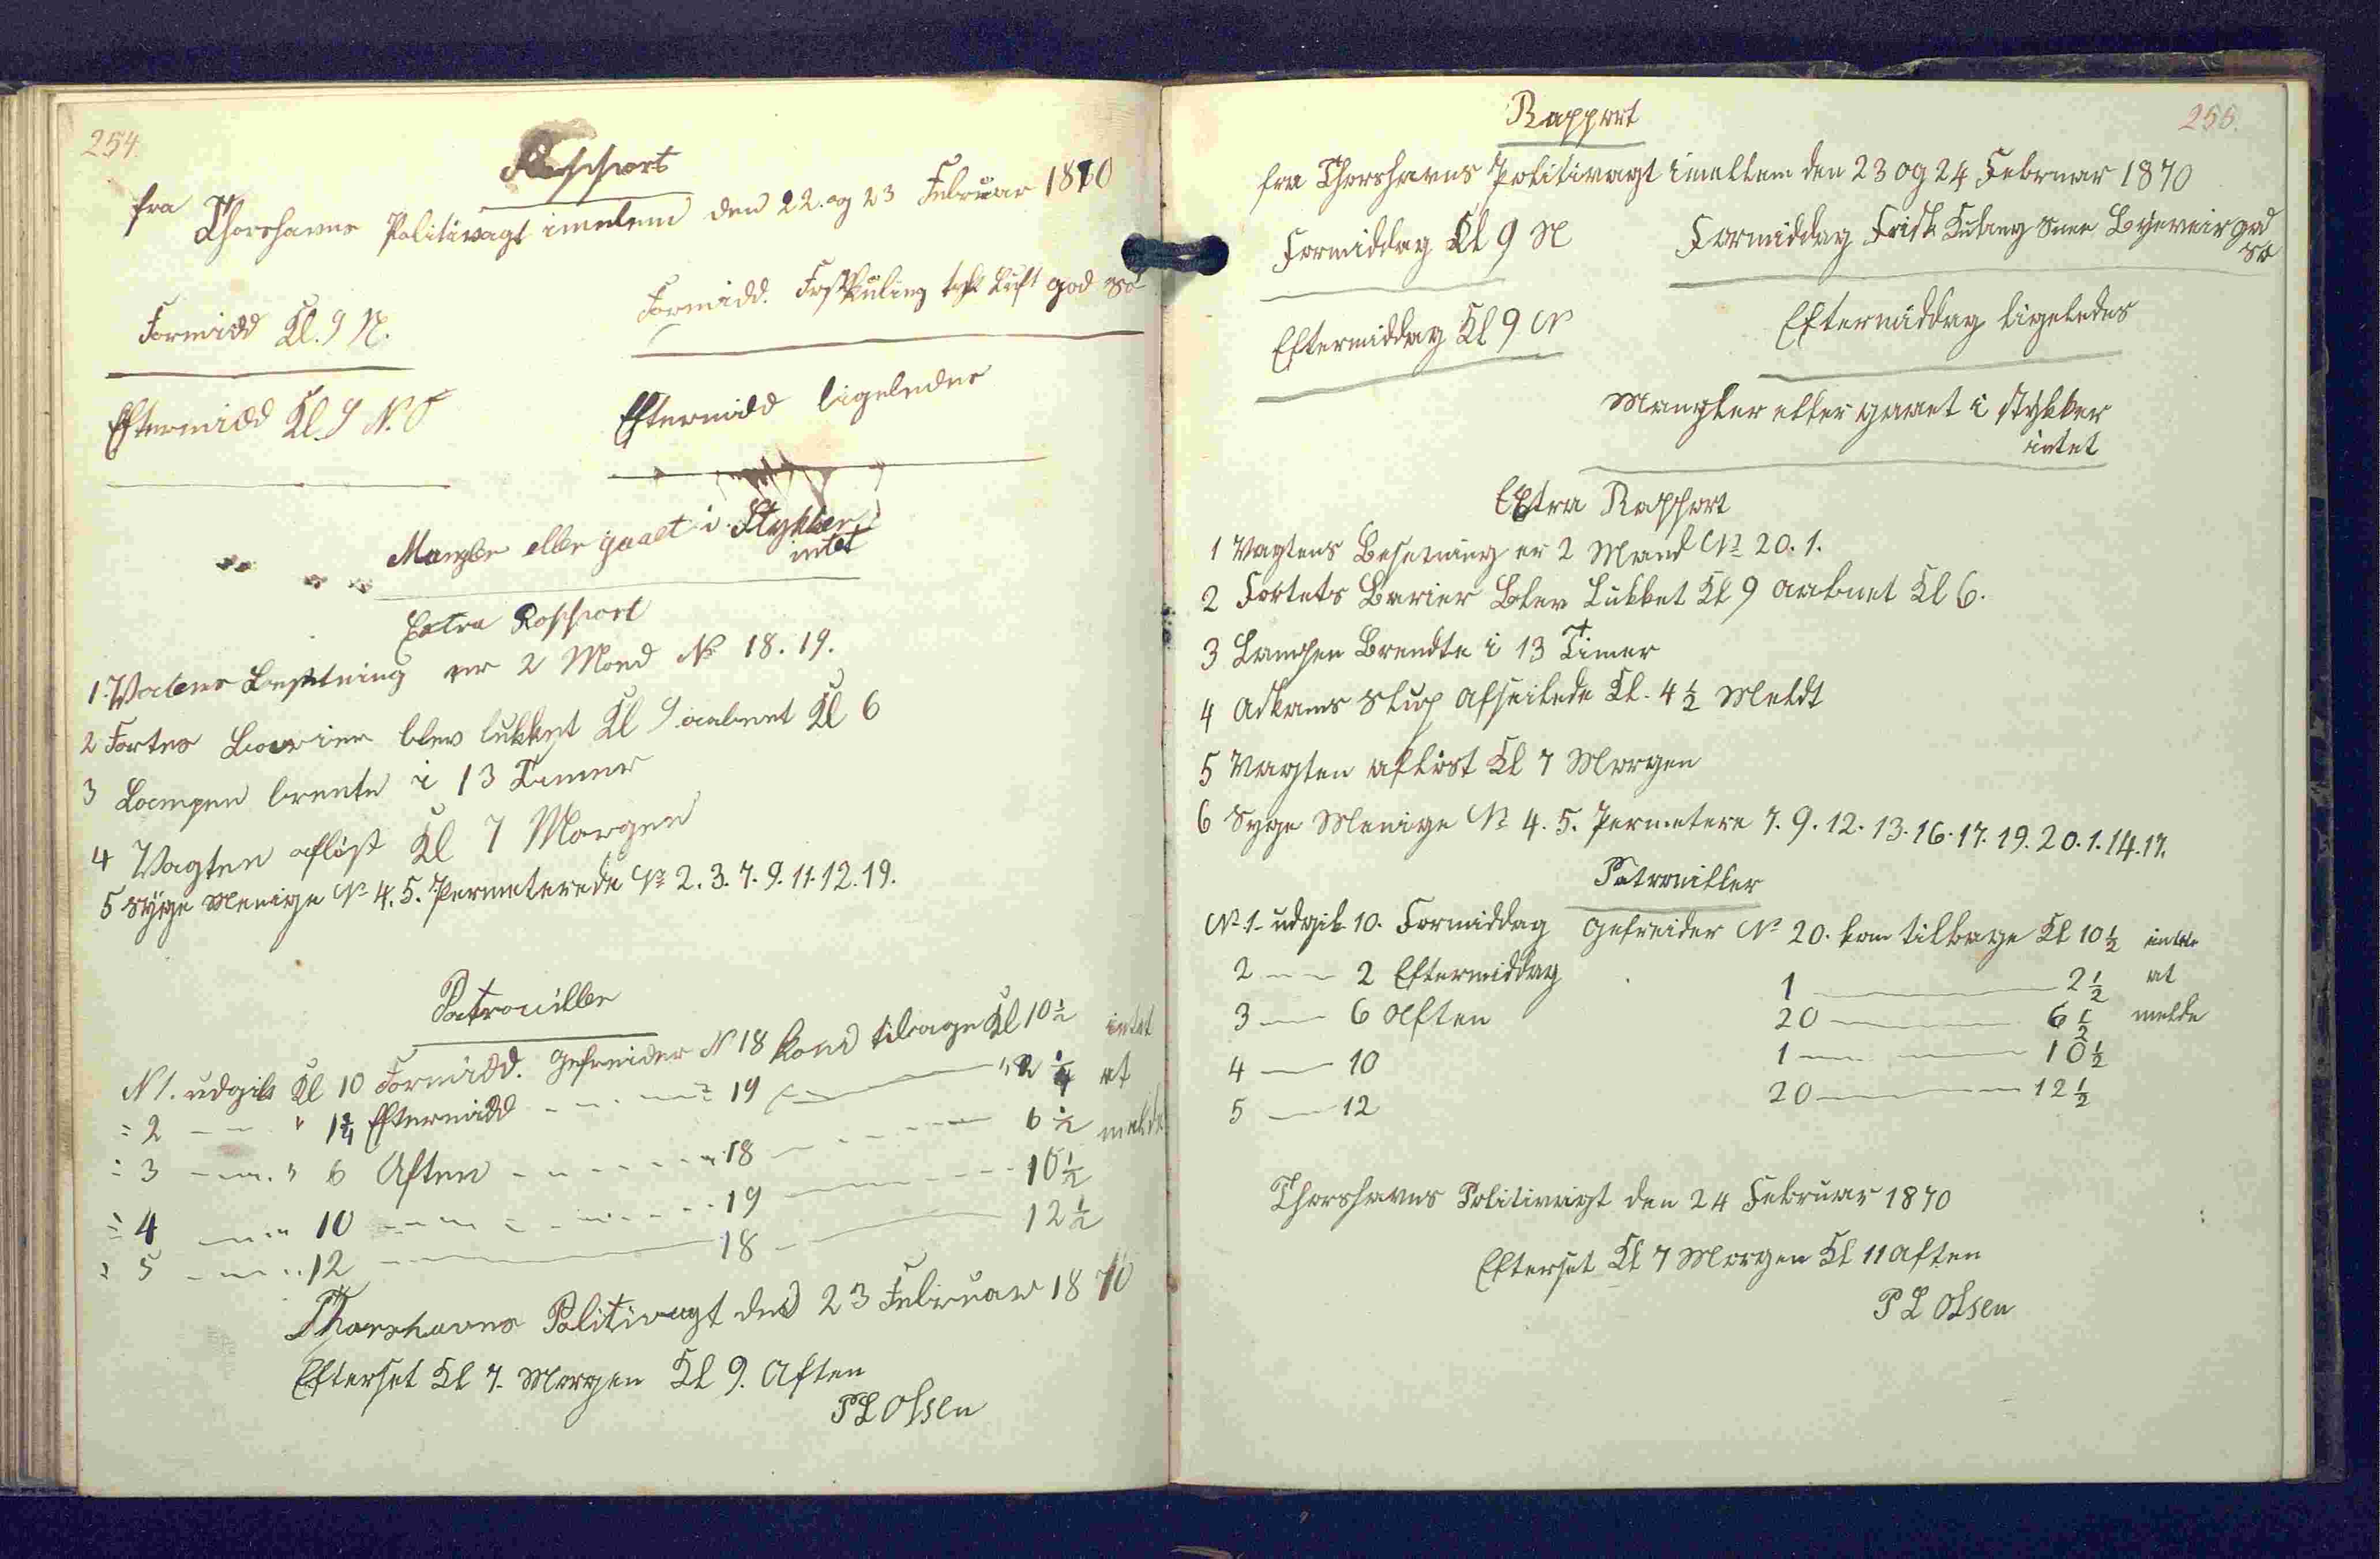 254.
Rapport
fra Thorshavns Politivagt imelem den 22. og 23 Februar 1870
Formidd Kl. 9 N.
Formidd. Frsk Kuling tyk Luft god So
Eftermidd Kl. 9 N.O
Eftermidd ligeledes
Mangler eller gaaet i Stykker
intet
Extra Rapport
1. Vatens Besetning er 2 Mand No 18. 19.
2 Fortes Barrier blev lukket Kl 9 aabnet Kl 6
3 Lampen brente i 13 Timer
4 Vagten afløst Kl 7 Morgen
5 Syge Menige No 4. 5. Permeterede No 2. 3. 7. 9. 11. 12. 19.
Patrouiller
N 1. udgik Kl 10 Formidd. Gefreider N 18 kom tilbage Kl 10 1/2 intet
2 " 1 3/4 Eftermidd 19 2 1/4 at
3 " 6 Aften 18 6 1/2 melde
4 " 10 19 10 1/2
5 " 12 18 12 1/2
Thorshavns Politivagt den 23 Februar 1870
Efterset Kl 7. Morgen Kl 9. Aften
P L Olsen
255.
Rapport
fra Thorshavns Politivagt imellem den 23 og 24 Februar 1870
Formiddag Kl 9 N
Formiddag Frisk Kuling Snee Byeveir god
So
Eftermiddag Kl 9 N
Eftermiddag ligeledes
Mangler eller gaaet i stykker
intet
Extra Rapport
1 Vagtens Besetning er 2 Mand No 20. 1.
2 Fortets Barier Blev Lukket Kl 9 aabnet Kl 6.
3 Lampen Brendte i 13 Timer
4 Slup afseilede Kl. 4 1/2 Meldt
5 Vagten afløst Kl 7 Morgen
6 Syge Menige No 4. 5. Permetere 7. 9. 12. 13. 16. 17. 19. 20. 1. 14. 17.
Patrouiller
No 1. udgik 10. Formiddag Gefreider No 20. kom tilbage Kl 10 1/2 intet
2 2 Eftermiddag 1 2 1/2 at
3 6 Aften 20 6 1/2 melde
4 10 1 10 1/2
5 12 20 12 1/2
Thorshavns Politivagt den 24 Februar 1870
Efterset Kl 7 Morgen Kl 11 Aften
P L Olsen